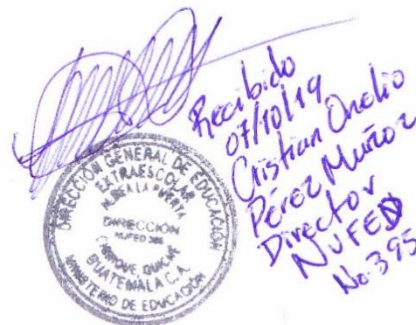 Recibido
07/10/19
Cristian Onelio
Pérez Muñoz
Director
NUFED
No. 395
DIRECCIÓN GENERAL DE EDUCACIÓN
EXTRAESCOLAR
ALDEA LA PUERTA
DIRECCIÓN
NUFED 395
QUICHÉ
GUATEMALA C.A.
MINISTERIO DE EDUCACIÓN